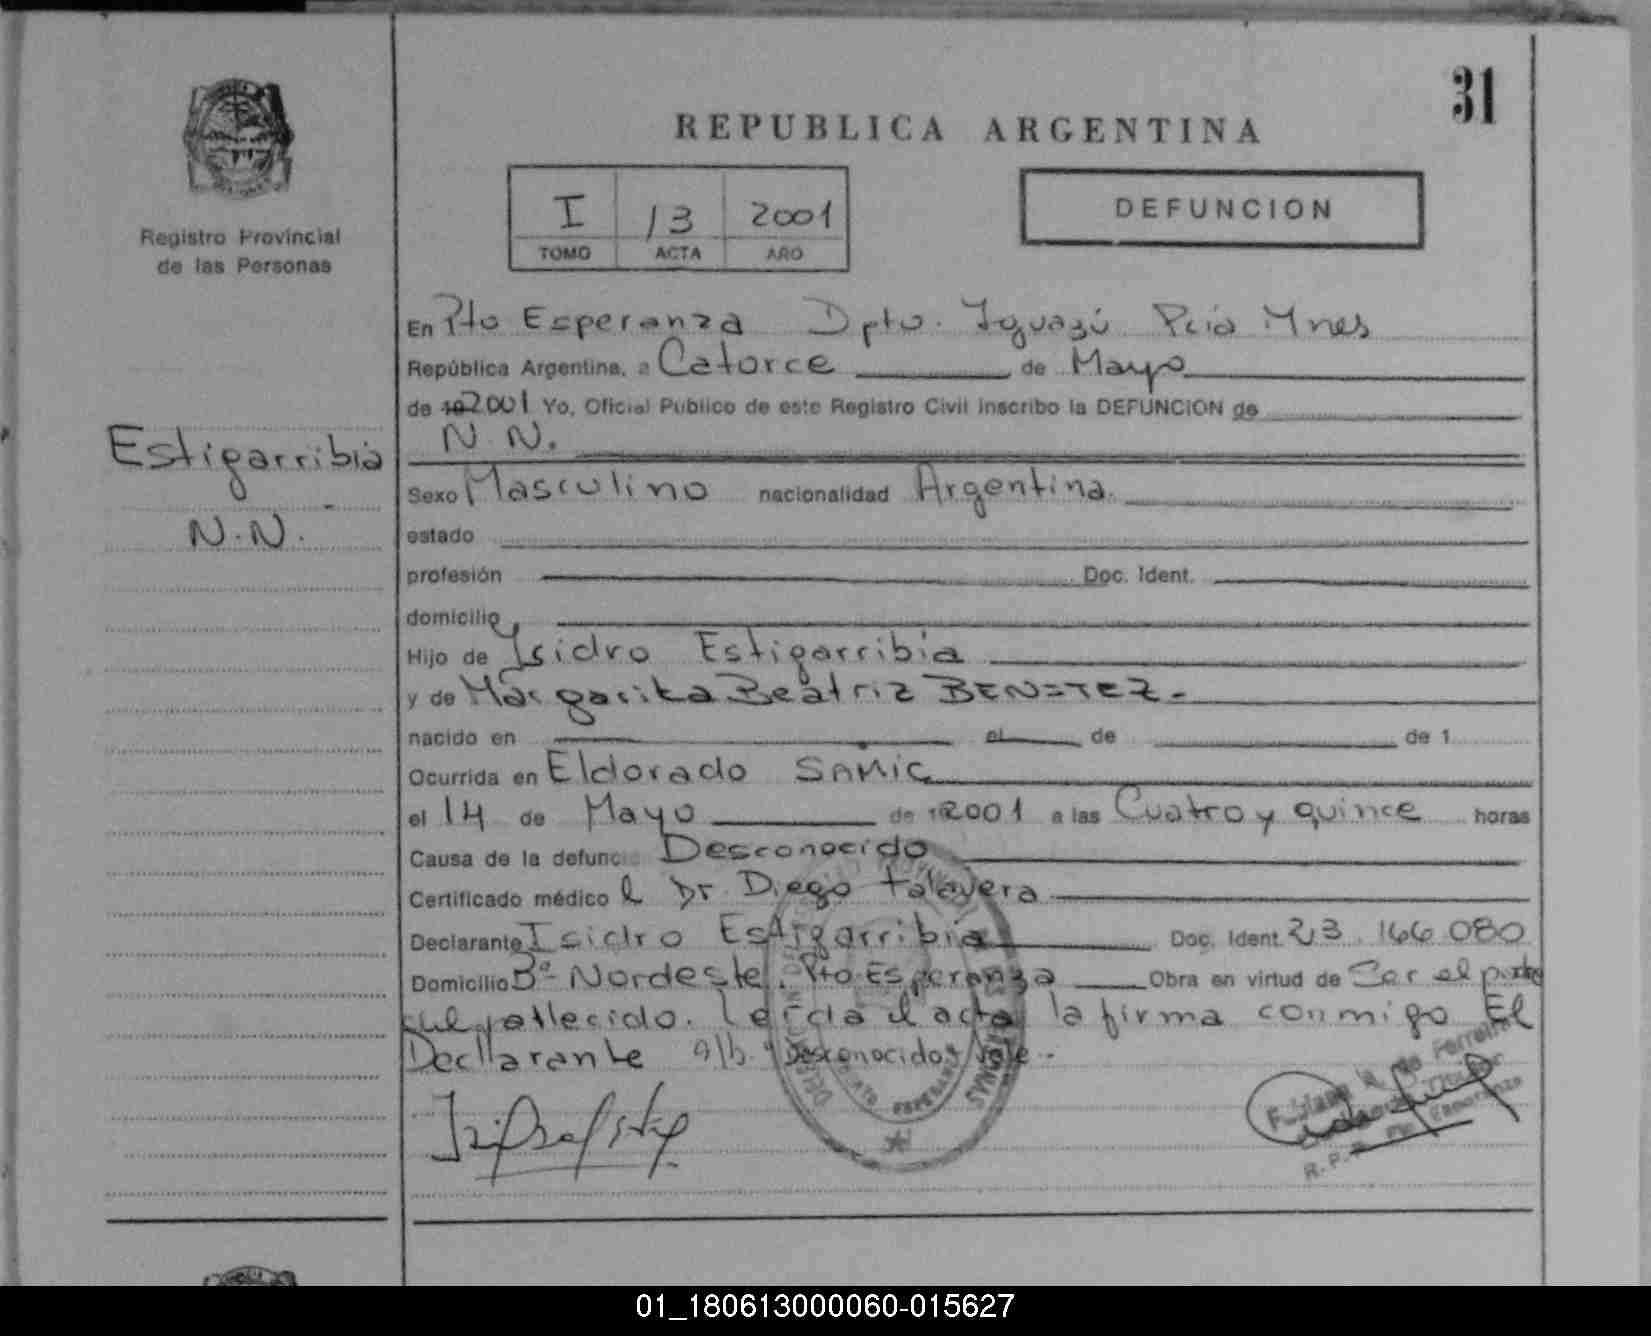 31
REPUBLICA ARGENTINA
I 13 2001
TOMO ACTA AÑO
DEFUNCION
Registro Provincial
de las Personas
Estigarribia
N.N.
En Pto Esperanza Dpto. Iguazú Pcia Mnes
República Argentina, a Catorce de Mayo
de 192001 Yo, Oficial Público de este Registro Civil inscribo la DEFUNCION de
N N.
Sexo Masculino nacionalidad Argentina.
estado
profesión Doc. Ident.
domicilio
Hijo de Isidro Estigarribia
y de Margarita Beatriz BENITEZ.-
nacido en el de de 1
Ocurrida en Eldorado SAMIC
el 14 de Mayo de 2001 a las Cuatro y quince horas
Causa de la defunc Desconocido
Certificado médico Dr Diego Talavera
Declarante Isidro Estigarribia Doc. Ident. 23.166.080
Domicilio Bº Nordeste. Pto Esperanza Obra en virtud de Ser el
fallecido. acta la firma conmigo El
Declarante "Desconocido" vale.-
ESPERANZA
de Ferreira
Titular
Esperanza
R. P.
01_180613000060-015627